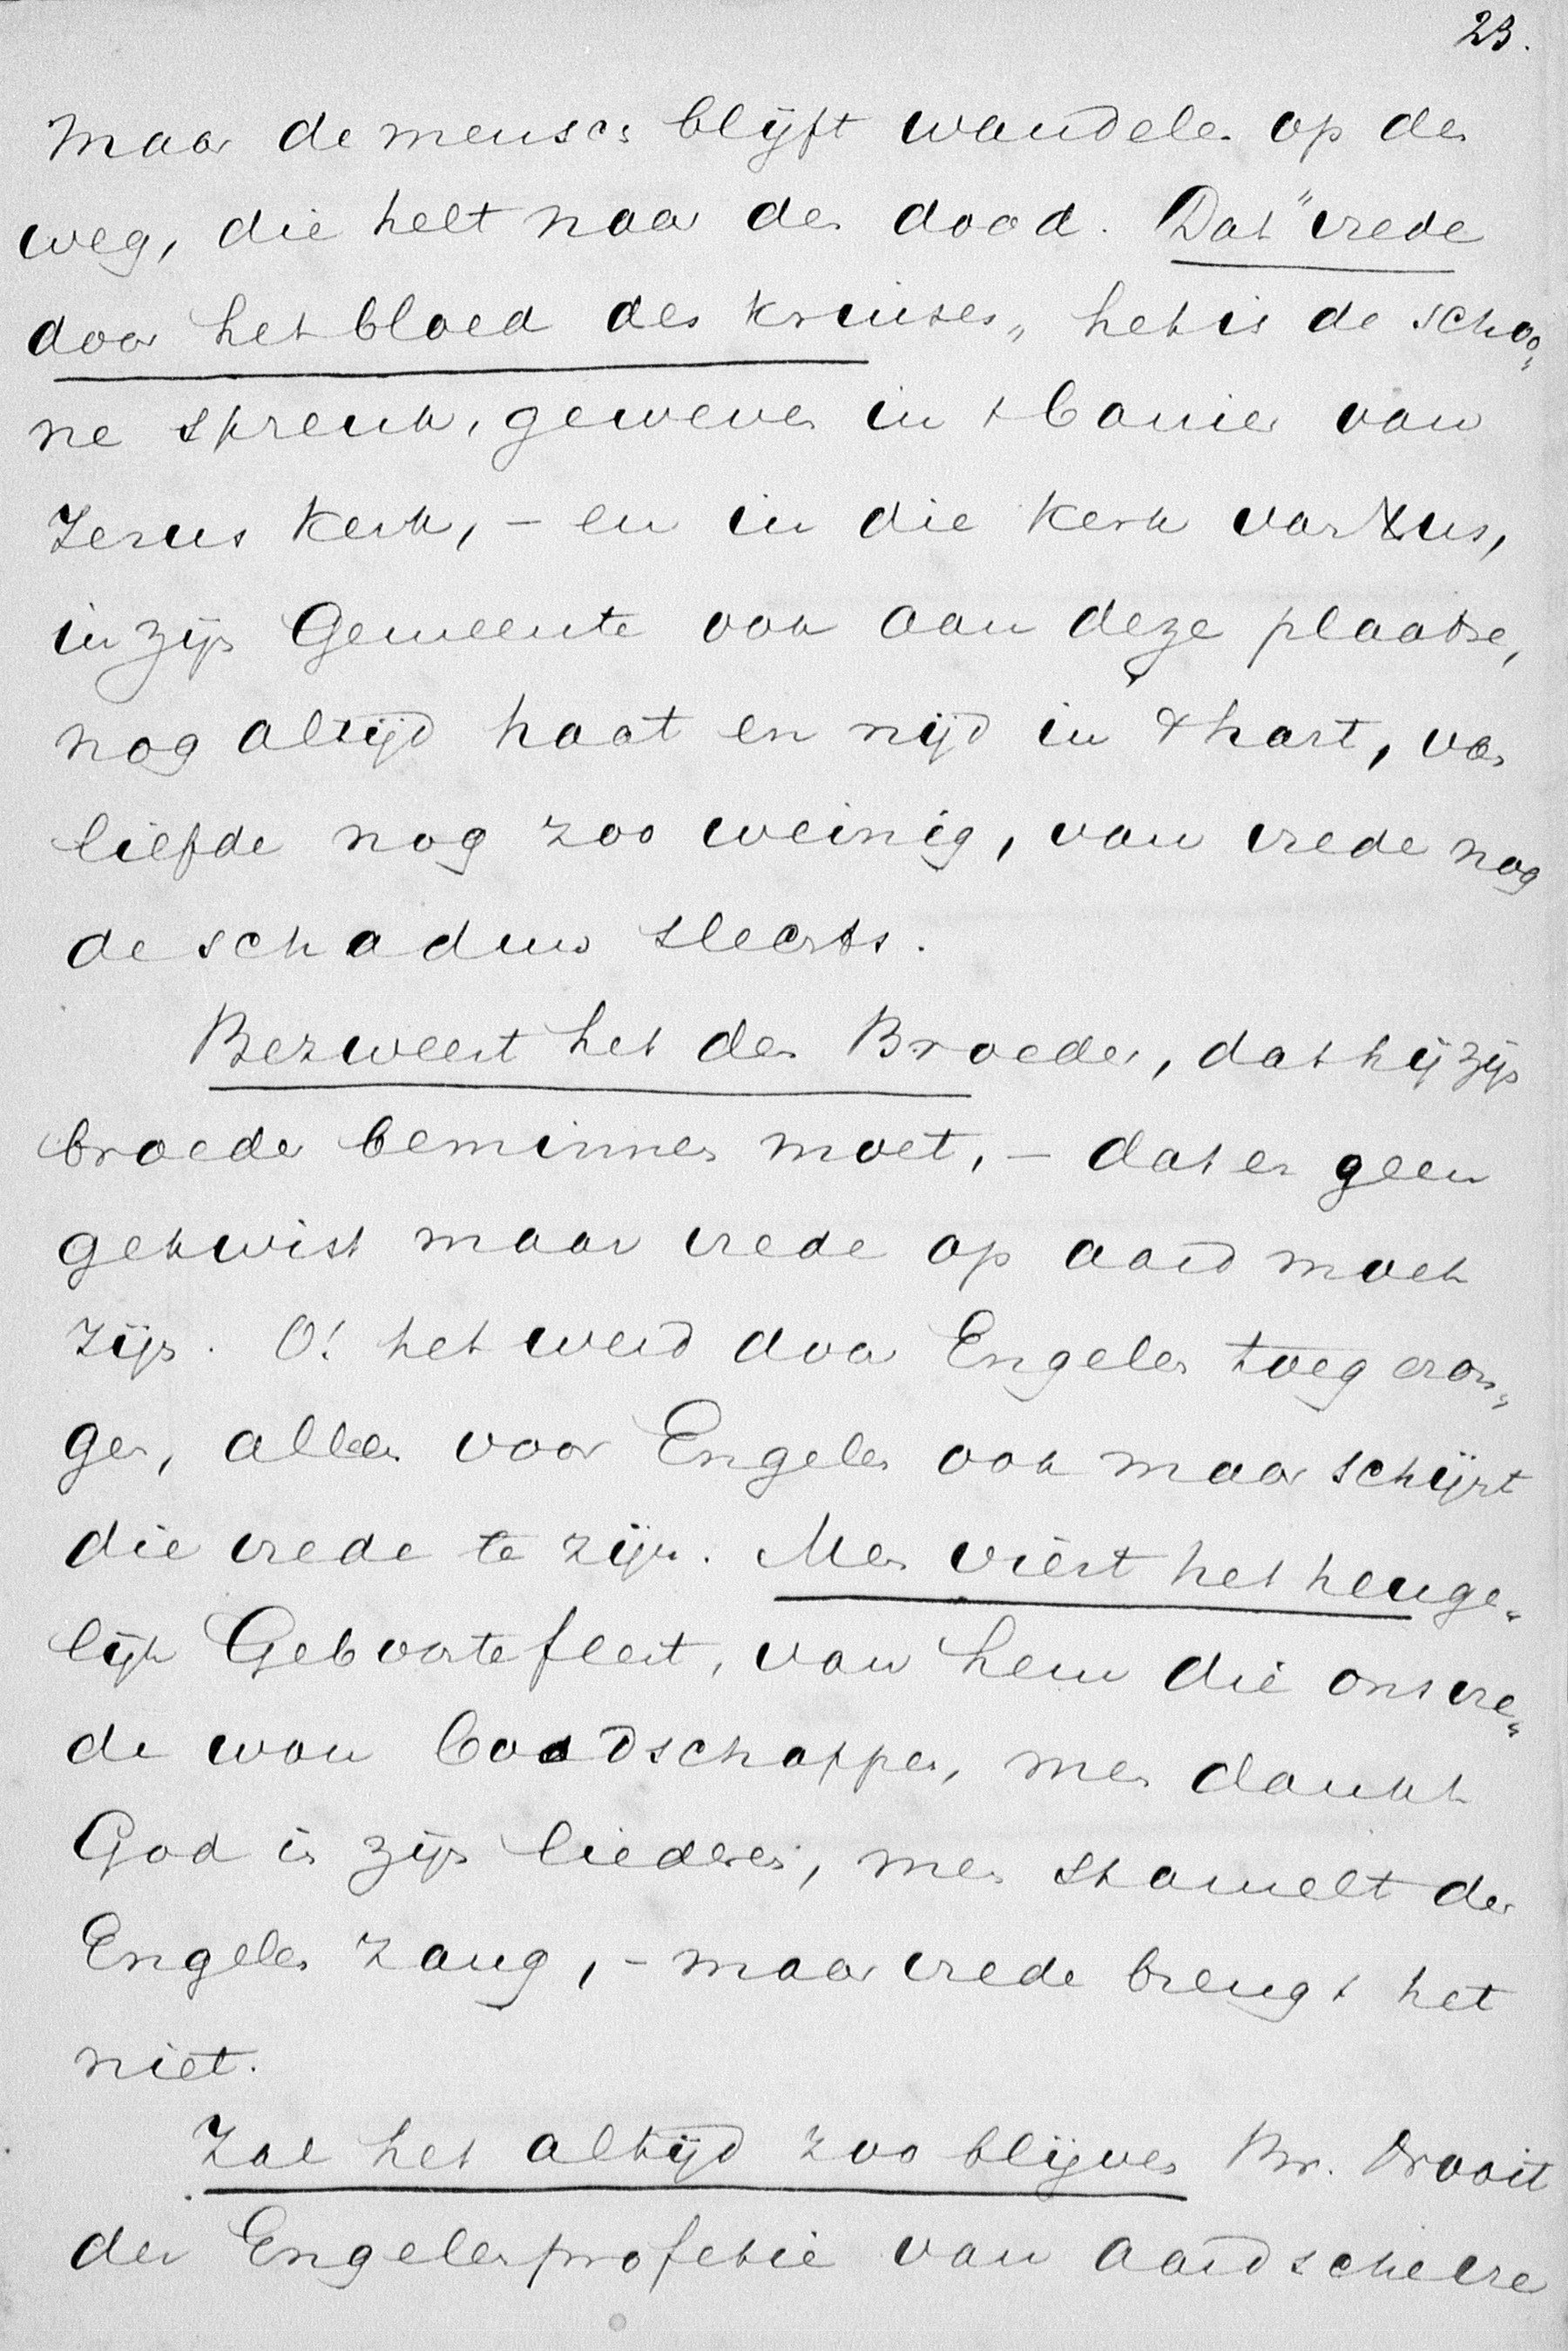 23.
Maar de mensch blijft wandelen op den
weg, die helt naar den dood. Dat "vrede
door het bloed des kruises„ het is de schoo„
ne spreuk, geweven in 't banier van
Jezus kerk, – en in die kerk van Xus,
in zijn Gemeente ook aan deze plaatse,
nog altijd haat en nijd in 't hart, van
liefde nog zoo weinig, van vrede nog
de schaduw slechts.
Bezweert het den Broeder, dat hij zijn
broeder beminnen moet, – dat er geen
getwist maar vrede op aard moet
zijn. O! het werd door Engelen toegezon„
gen, alleen voor Engelen ook maar schijnt
die vrede te zijn. Men viert het heuge„
lijk Geboortefeest, van hem die ons vre„
de wou boodschappen, men dankt
God in zijn liederen, men stamelt den
Engelen zang, – maar vrede brengt het
niet.
Zal het altijd zoo blijven Br. Nooit
der Engelenprofetie van aardsche vre